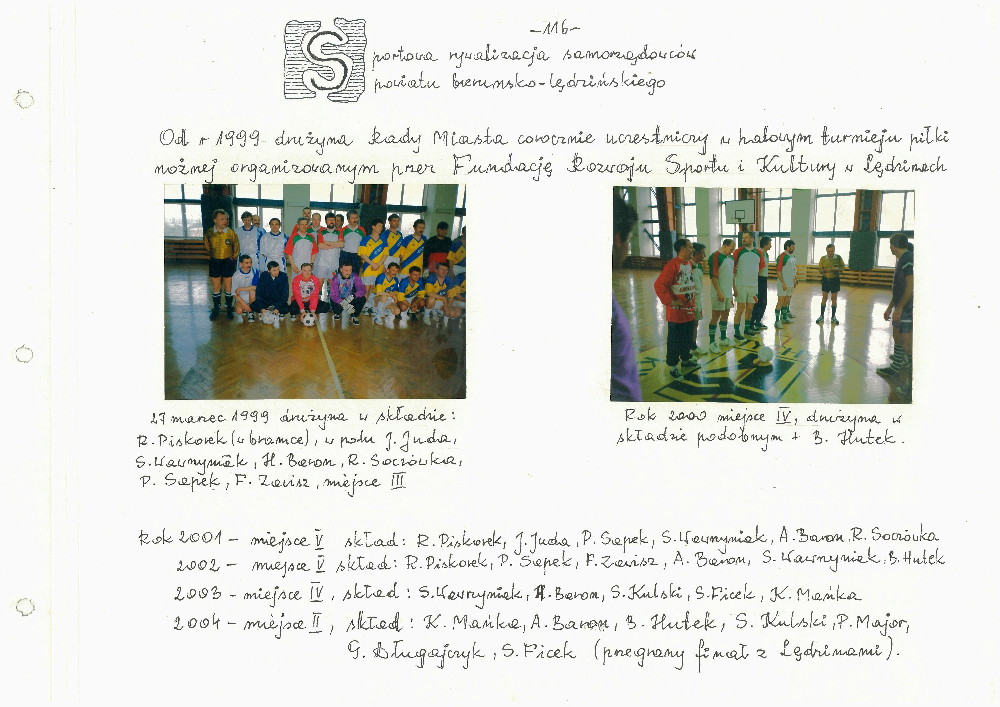 -116-
Sportowa rywalizacja samorządowców
powiatu bieruńsko-lędzińskiego
Od r 1999 drużyna Rady Miasta corocznie uczestniczy w halowym turnieju piłki
nożnej organizowanym przez Fundację Rozwoju Sportu i Kultury w Lędzinach
27 marzec 1999 drużyna w składzie:
R. Piskorek (w bramce), w polu J. Juda,
S. Wawrzyniak, H. Baron, R. Soczówka,
P. Sapek, F. Zawisz, miejsce III
Rok 2000 miejsce IV, drużyna w
składzie podobnym + B. Hutek.
Rok 2001 - miejsce V skład: R. Piskorek, J. Juda, P. Sapek, S. Wawrzyniak, A. Baron, R. Soczówka
2002 - miejsce V skład: R. Piskorek, P. Sapek, F. Zawisz, A. Baron, S. Wawrzyniak, B. Hutek
2003 - miejsce IV, skład: S. Wawrzyniak, A. Baron, S. Kulski, S. Ficek, K. Mańka
2004 - miejsce II, skład: K. Mańka, A. Baron, B. Hutek, S. Kulski, P. Major,
G. Długajczyk, S. Ficek (przegrany finał z Lędzinami).